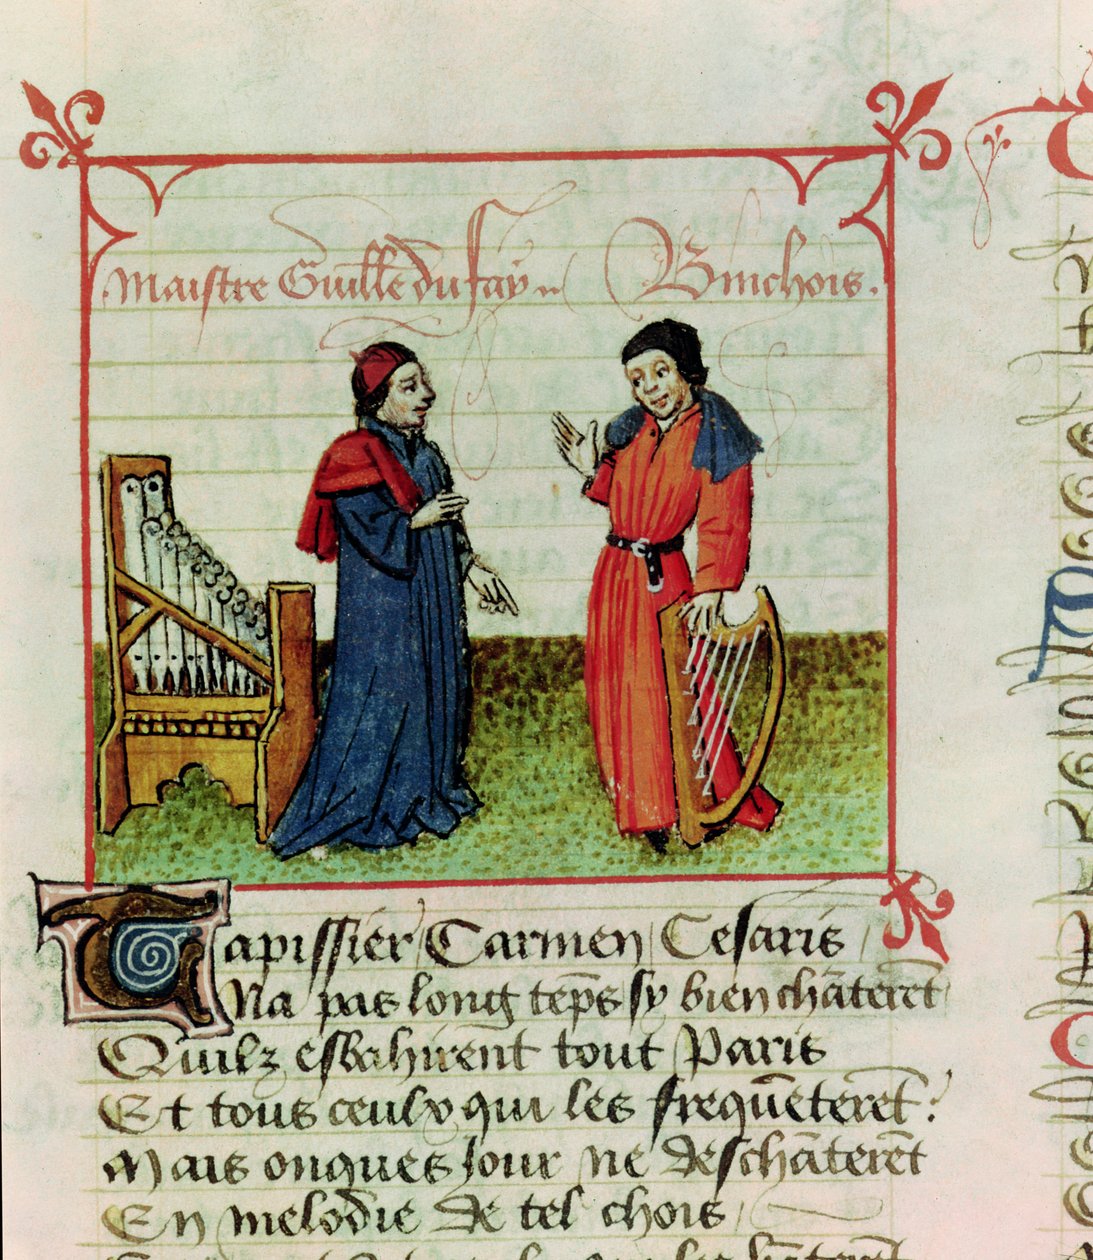 Maistre Guillē du fay Binchois.
Tapissier Carmen Cesaris
Na pas long tēps sy bien chāterēt
Quilz esbahirent tout Paris
Et tous ceulx qui les frequēterēt:
Mais onques Jour ne deschāterēt
En melodie de tel chois